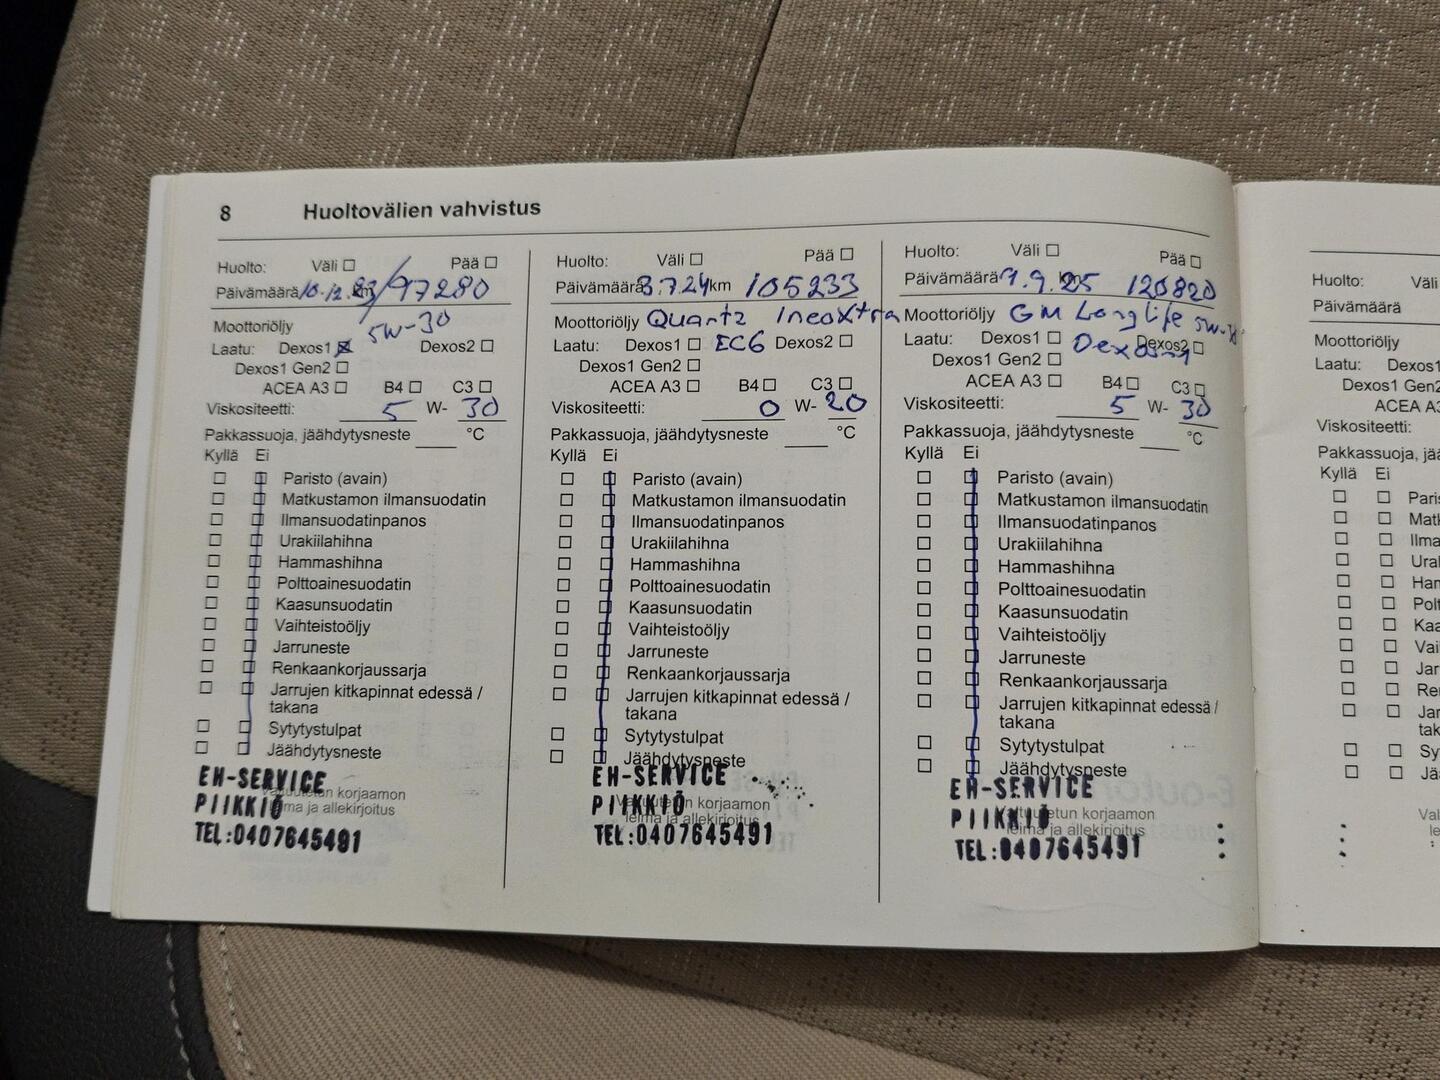 8 Huoltovälien vahvistus
Huolto: Väli ☐ Pää ☐
Päivämäärä 10.12.23/97280
Moottoriöljy 5W-30
Laatu: Dexos1 ☒ Dexos2 ☐
Dexos1 Gen2 ☐
ACEA A3 ☐ B4 ☐ C3 ☐
Viskositeetti: 5 W- 30
Pakkassuoja, jäähdytysneste ____ °C
Kyllä Ei
☐ ☐ Paristo (avain)
☐ ☐ Matkustamon ilmansuodatin
☐ ☐ Ilmansuodatinpanos
☐ ☐ Urakiilahihna
☐ ☐ Hammashihna
☐ ☐ Polttoainesuodatin
☐ ☐ Kaasunsuodatin
☐ ☐ Vaihteistoöljy
☐ ☐ Jarruneste
☐ ☐ Renkaankorjaussarja
☐ ☐ Jarrujen kitkapinnat edessä /
takana
☐ ☐ Sytytystulpat
☐ ☐ Jäähdytysneste
EH-SERVICE
Valtuutetun korjaamon
PIIKKIÖ
leima ja allekirjoitus
TEL:0407645491
Huolto: Väli ☐ Pää ☐
Päivämäärä 3.7.24 km 105233
Moottoriöljy Quartz IneoXtra
Laatu: Dexos1 ☐ EC6 Dexos2 ☐
Dexos1 Gen2 ☐
ACEA A3 ☐ B4 ☐ C3 ☐
Viskositeetti: 0 W- 20
Pakkassuoja, jäähdytysneste ____ °C
Kyllä Ei
☐ ☐ Paristo (avain)
☐ ☐ Matkustamon ilmansuodatin
☐ ☐ Ilmansuodatinpanos
☐ ☐ Urakiilahihna
☐ ☐ Hammashihna
☐ ☐ Polttoainesuodatin
☐ ☐ Kaasunsuodatin
☐ ☐ Vaihteistoöljy
☐ ☐ Jarruneste
☐ ☐ Renkaankorjaussarja
☐ ☐ Jarrujen kitkapinnat edessä /
takana
☐ ☐ Sytytystulpat
☐ ☐ Jäähdytysneste
EH-SERVICE
Valtuutetun korjaamon
PIIKKIÖ
leima ja allekirjoitus
TEL:0407645491
Huolto: Väli ☐ Pää ☐
Päivämäärä 9.9.25 120820
Moottoriöljy GM Longlife 5W-30
Laatu: Dexos1 ☐ Dexos2 ☐
Dexos1 Gen2 ☐
ACEA A3 ☐ B4 ☐ C3 ☐
Viskositeetti: 5 W- 30
Pakkassuoja, jäähdytysneste ____ °C
Kyllä Ei
☐ ☐ Paristo (avain)
☐ ☐ Matkustamon ilmansuodatin
☐ ☐ Ilmansuodatinpanos
☐ ☐ Urakiilahihna
☐ ☐ Hammashihna
☐ ☐ Polttoainesuodatin
☐ ☐ Kaasunsuodatin
☐ ☐ Vaihteistoöljy
☐ ☐ Jarruneste
☐ ☐ Renkaankorjaussarja
☐ ☐ Jarrujen kitkapinnat edessä /
takana
☐ ☐ Sytytystulpat
☐ ☐ Jäähdytysneste
EH-SERVICE
Valtuutetun korjaamon
PIIKKIÖ
leima ja allekirjoitus
TEL:0407645491
Huolto: Väli
Päivämäärä
Moottoriöljy
Laatu: Dexos1
Dexos1 Gen2
ACEA A3
Viskositeetti:
Kyllä Ei